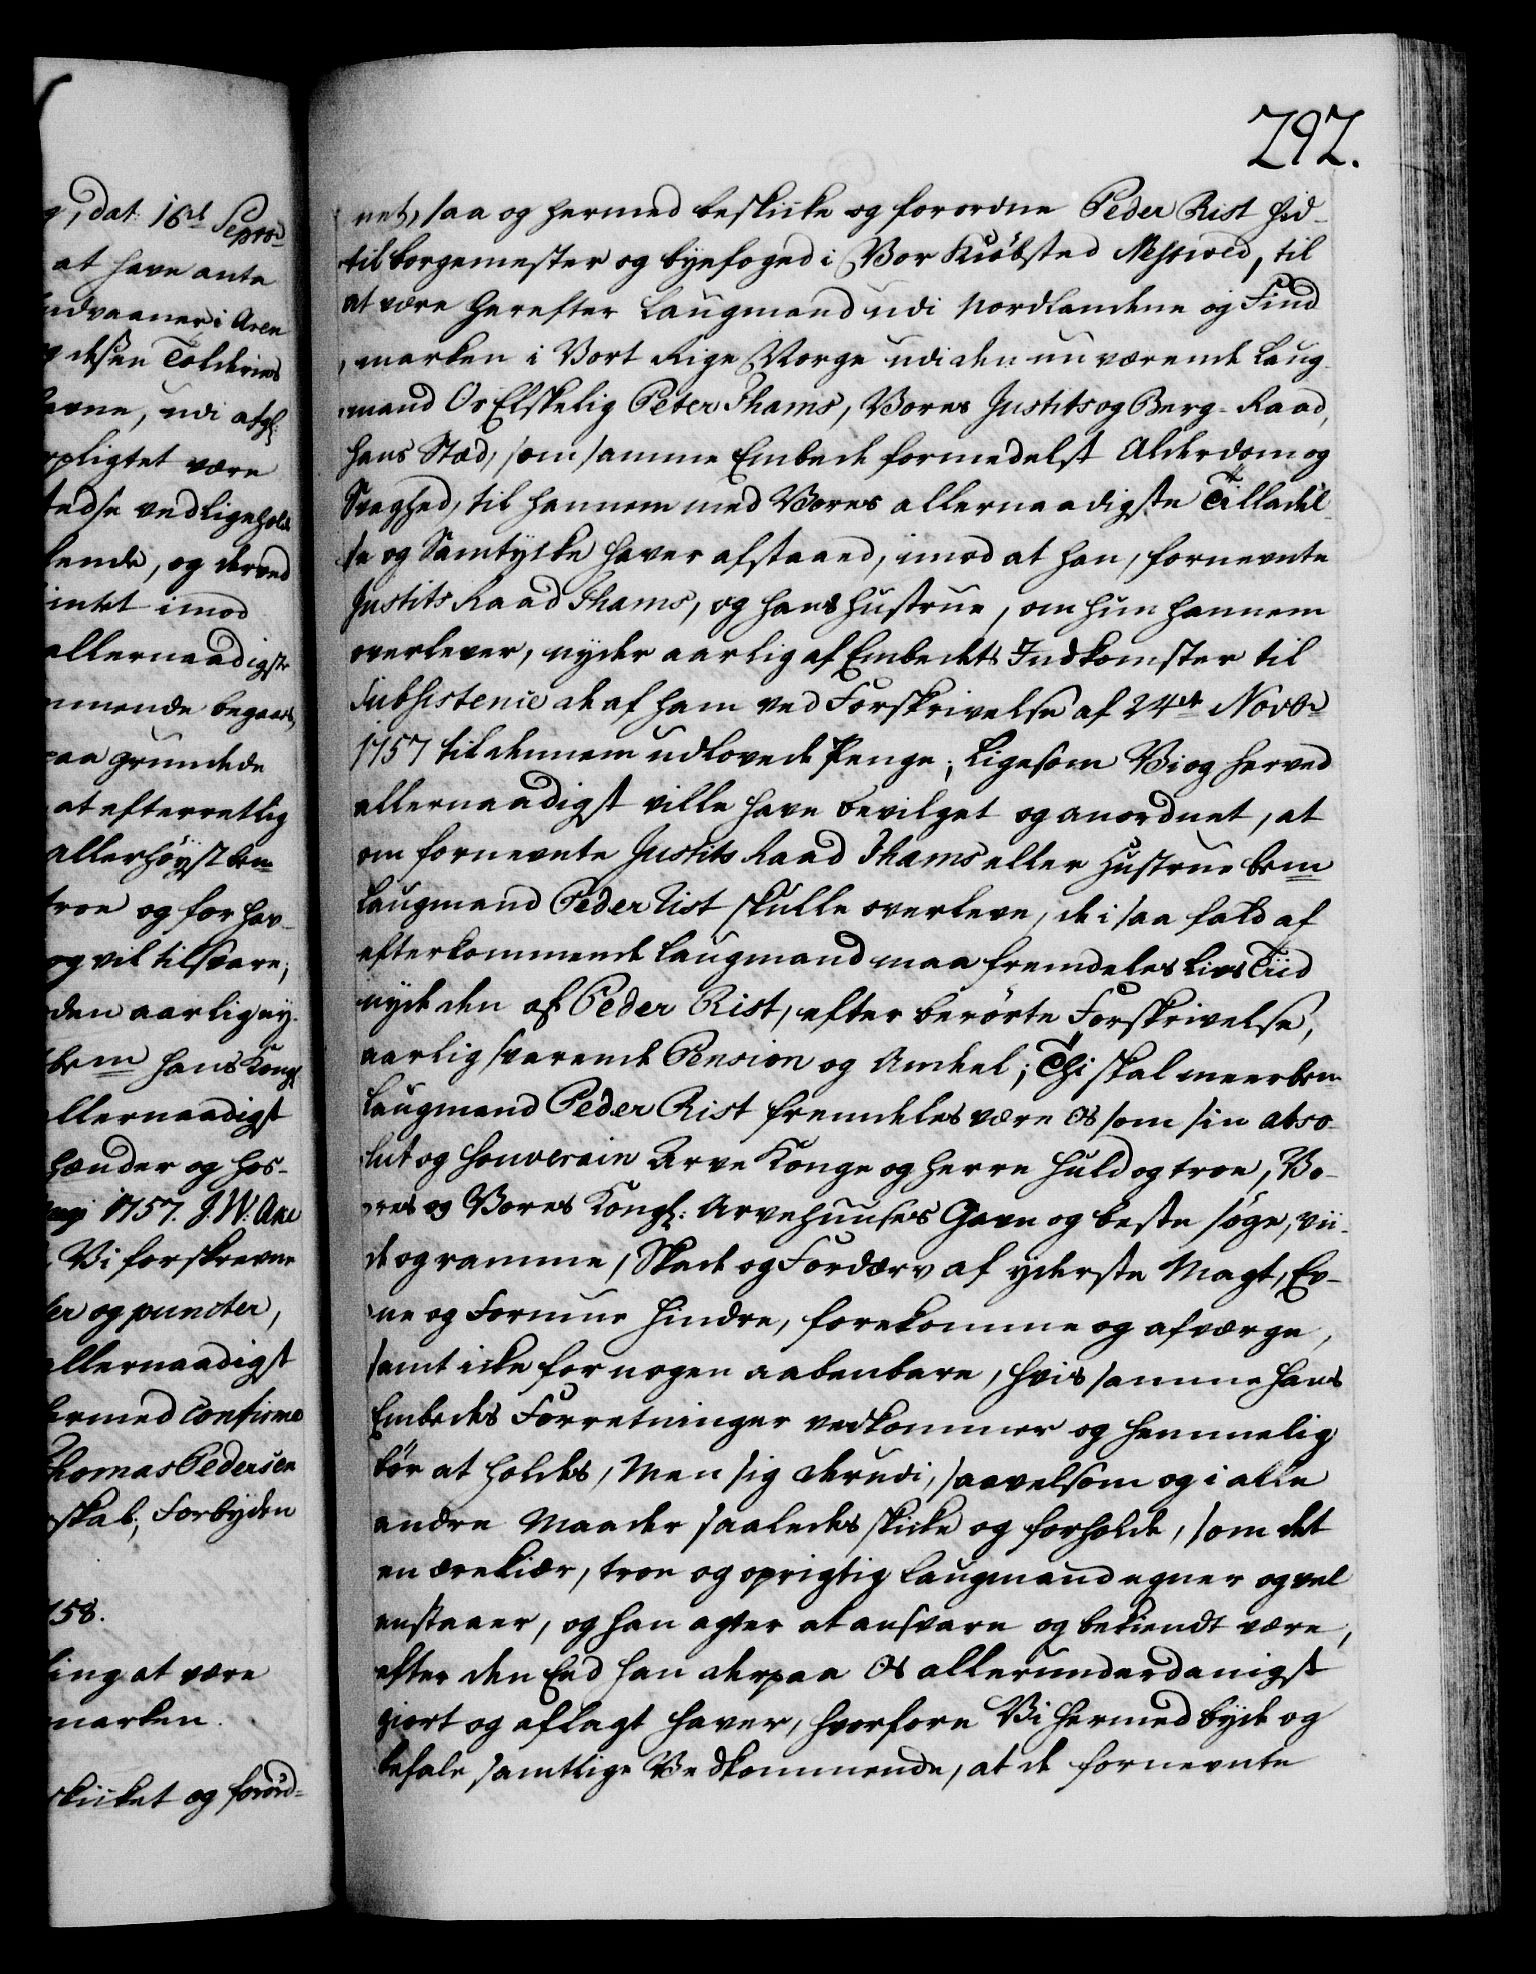 292.
g, dat: 16de Septbr
at have anta
Indvaaner i Aren
desen Tolderies
havne, udi afgl:
pligtet være
tedse vedligehold
kende, og derved
intet imod
allernaadigste
mmende begaars
paa grundede
at efterretlig
allerhöyst bem
troe og for hav-
og vil tilsvare;
den aarlig ny-
bem hans Kongl
llernaadigst
hænder og hos-
1757. J. W: Ane
Vi forskrevne
er og puncter,
allernaadigst
hermed Confirme
Thomas Pedersen
skal; Forbyden
158.
ling at være
marken.
skiket og forord-
net, saa og hermed beskikke og forordne Peder Rist hid-
til borgemester og byefoged i Vor Kiöbsted Nestved, til
at være herefter Laugmand udi Nordlandene og Find
marken i Vort Rige Norge udi den nu værende Laug-
mand Os Elskelig Peter Thams, Vores Justits og Berg-Raad,
hans Stæd, som samme Embede formedelst Alderdom og
Svaghed, til hannem med Vores allernaadigste Tilladel-
se og Samtykke haver afstaaed, imod at han, fornevnte
Justits Raad Thams, og hans Hustrue, om hun hannem
overlever, nyder aarlig af Embedets Indkomster til
Subsistence de af ham ved Forskrivelse af 24de Novbr
1757 til dennem udlovede Penge; Ligesom Vi og herved
allernaadigst ville have bevilget og anordnet, at
om fornevnte Justits Raad Thams eller Hustrue bem
Laugmand Peder Rist skulle overleve, de i saa fald af
efterkommende Laugmand maa fremdeles Livs Tiid
nyde den af Peder Rist, efter berörte Forskrivelse,
aarlig svarende Pension og Andeel; Thi skal meerbem
Laugmand Peder Rist fremdeles være Os som sin abso-
lut og Souverain Arve Konge og Herre huld og troe, Vo-
res og Vores Kongl: Arvehuuses Gavn og beste söge, vii-
de og ramme, Skade og Fordærv af yderste Magt, Ev-
ne og Formue hindre, forekomme og afværge,
samt icke for nogen aabenbare, hvis samme hans
Embedes Forretninger vedkommer og hemmelig
bör at holdes, Men sig derudi, saavelsom og i alle
andre Maader saaledes skikke og forholde, som det
en ærekiær, troe og oprigtig Laugmand egner og vel
anstaaer, og han agter at ansvare og bekiendt være,
efter den Eed han derpaa Os allerunderdanigst
giort og aflagt haver, hvorfore Vi hermed byde og
befale samtlige Vedkommende, at de fornevnte